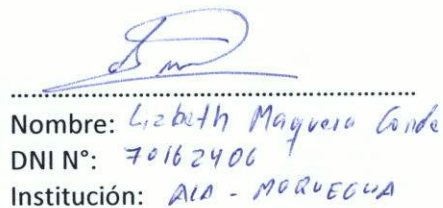 Nombre: Lizbeth Maquera Conde
DNI N°: 70162406
Institución: ALA - MOQUEGUA